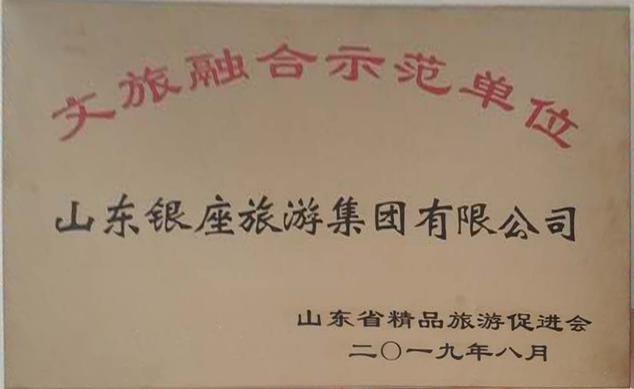 文旅融合示范单位
山东银座旅游集团有限公司
山东省精品旅游促进会
二〇一九年八月